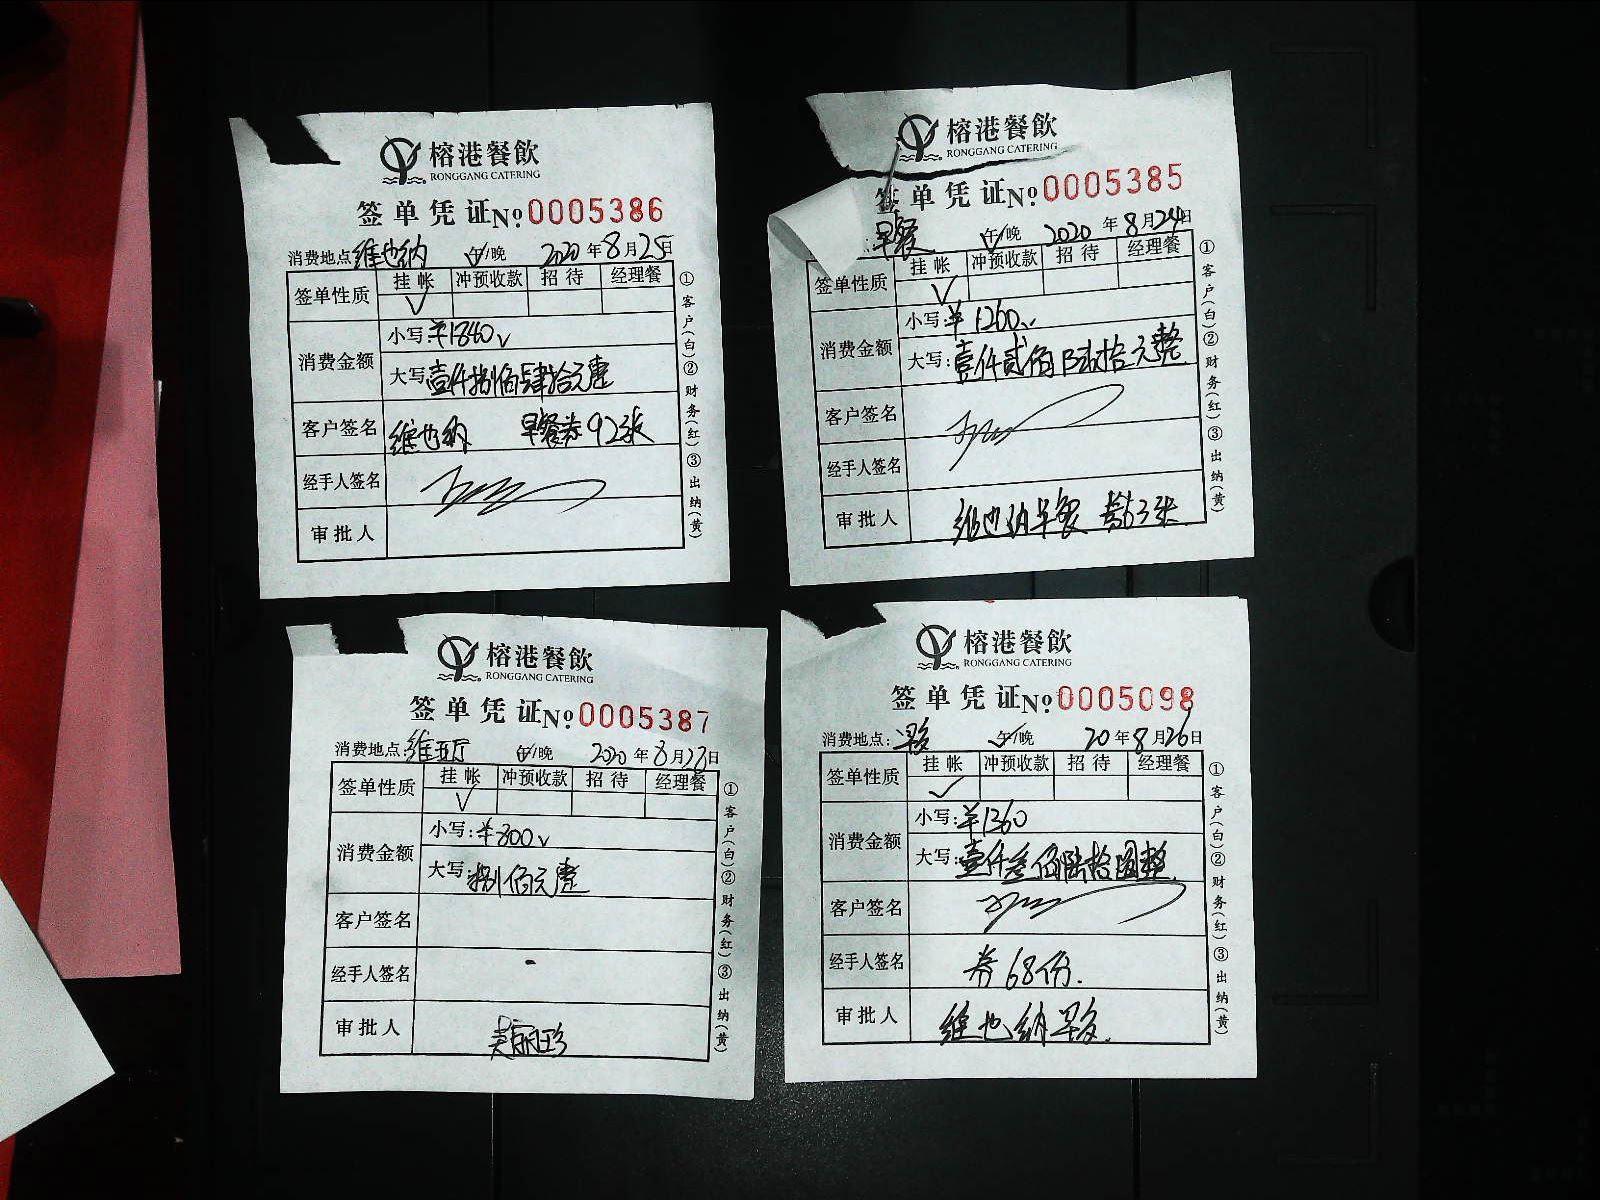 榕港餐飲
RONGGANG CATERING
签单凭证№0005386
消费地点 维也纳 午/晚 2020年8月25日
签单性质 挂帐 冲预收款 招待 经理餐
✓
消费金额 小写:¥1840
大写:壹仟捌佰肆拾元整
客户签名 维也纳 早餐券92张
经手人签名
审批人
①客户(白)②财务(红)③出纳(黄)
榕港餐飲
RONGGANG CATERING
签单凭证№0005385
早餐 午/晚 2020年8月24日
签单性质 挂帐 冲预收款 招待 经理餐
✓
消费金额 小写:¥1260
大写:壹仟贰佰陆拾元整
客户签名
经手人签名
审批人 维也纳早餐 券63张
①客户(白)②财务(红)③出纳(黄)
榕港餐飲
RONGGANG CATERING
签单凭证№0005387
消费地点: 午/晚 2020年8月 日
签单性质 挂帐 冲预收款 招待 经理餐
✓
消费金额 小写:¥800
大写:捌佰元整
客户签名
经手人签名
审批人
①客户(白)②财务(红)③出纳(黄)
榕港餐飲
RONGGANG CATERING
签单凭证№0005098
消费地点: 早歺 午/晚 20年8月26日
签单性质 挂帐 冲预收款 招待 经理餐
✓
消费金额 小写:¥1360
大写:壹仟叁佰陆拾圆整
客户签名
经手人签名 券68份.
审批人 维也纳早歺.
①客户(白)②财务(红)③出纳(黄)